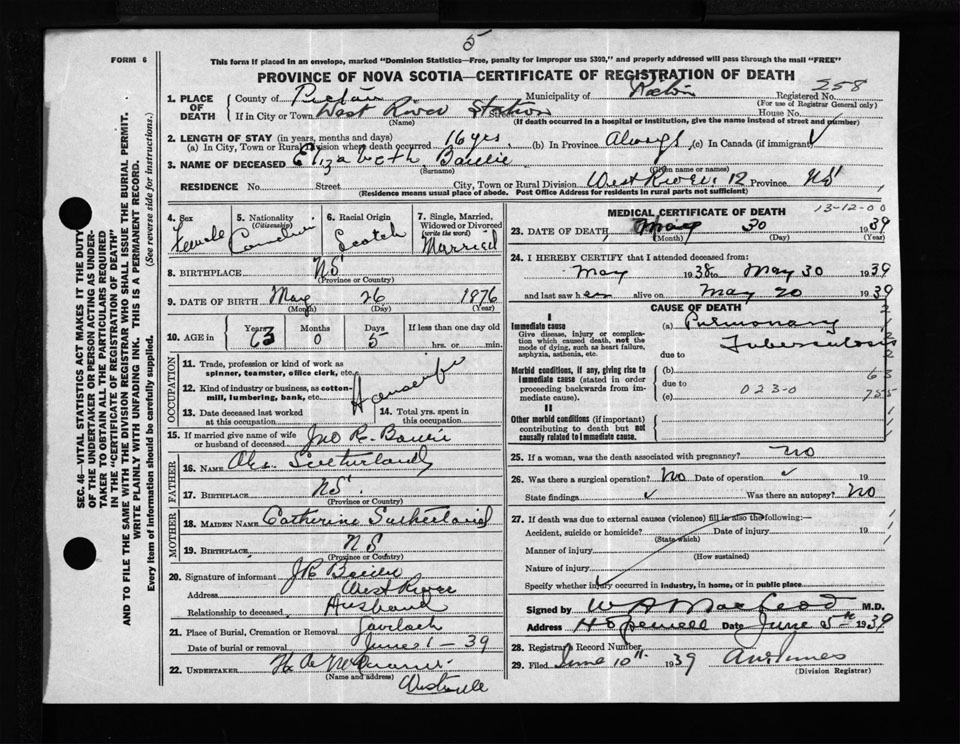 5
FORM 6
This form if placed in an envelope, marked "Dominion Statistics—Free, penalty for improper use $300," and properly addressed will pass through the mail "FREE"
PROVINCE OF NOVA SCOTIA—CERTIFICATE OF REGISTRATION OF DEATH
258
1. PLACE OF DEATH County of Pictou Municipality of Pictou Registered No.
(For use of Registrar General only)
If in City or Town West River Station Street House No.
(Name) (If death occurred in a hospital or institution, give the name instead of street and number)
2. LENGTH OF STAY (in years, months and days)
(a) In City, Town or Rural Division where death occurred 16 yrs. (b) In Province Always (c) In Canada (if immigrant)
3. NAME OF DECEASED Elizabeth
(Surname) (Given name or names)
RESIDENCE No. Street City, Town or Rural Division West River 12 Province NS
(Residence means usual place of abode. Post Office Address for residents in rural parts not sufficient)
4. Sex 5. Nationality (Citizenship) 6. Racial Origin 7. Single, Married, Widowed or Divorced (write the word)
Female Canadian Scotch Married
8. BIRTHPLACE NS
(Province or Country)
9. DATE OF BIRTH May 26 1876
(Month) (Day) (Year)
10. AGE in Years Months Days If less than one day old
63 0 5 hrs. or min.
OCCUPATION
11. Trade, profession or kind of work as spinner, teamster, office clerk, etc.
Housewife
12. Kind of industry or business, as cotton-mill, lumbering, bank, etc.
13. Date deceased last worked at this occupation 14. Total yrs. spent in this occupation
15. If married give name of wife or husband of deceased Jno R.
FATHER
16. NAME Alex. Sutherland
17. BIRTHPLACE NS
(Province or Country)
MOTHER
18. MAIDEN NAME Catherine Sutherland
19. BIRTHPLACE NS
(Province or Country)
20. Signature of informant JR
Address West River
Relationship to deceased Husband
21. Place of Burial, Cremation or Removal Gairloch
Date of burial or removal June 1 - 39
22. UNDERTAKER
(Name and address)
Westville
MEDICAL CERTIFICATE OF DEATH
13-12-00
23. DATE OF DEATH May 30 1939
(Month) (Day) (Year)
24. I HEREBY CERTIFY that I attended deceased from:
May 1938 to May 30 1939
and last saw her alive on May 20 1939
CAUSE OF DEATH
I
Immediate cause (a) Pulmonary Tuberculosis
Give disease, injury or complication which caused death, not the mode of dying, such as heart failure, asphyxia, asthenia, etc.
due to
Morbid conditions, if any, giving rise to immediate cause (stated in order proceeding backwards from immediate cause). (b)
due to
(c)
023-0
II
Other morbid conditions (if important) contributing to death but not causally related to immediate cause.
25. If a woman, was the death associated with pregnancy? No
26. Was there a surgical operation? No Date of operation 19
State findings Was there an autopsy? No
27. If death was due to external causes (violence) fill in also the following:—
Accident, suicide or homicide? Date of injury 19
(State which)
Manner of injury
(How sustained)
Nature of injury
Specify whether injury occurred in industry, in home, or in public place
Signed by W A MacLeod M.D.
Address Hopewell Date June 5th 1939
28. Registrars Record Number
29. Filed June 10th 1939
(Division Registrar)
SEC. 46—VITAL STATISTICS ACT MAKES IT THE DUTY
OF THE UNDERTAKER OR PERSON ACTING AS UNDER-
TAKER TO OBTAIN ALL THE PARTICULARS REQUIRED
IN THE "CERTIFICATE OF REGISTRATION OF DEATH"
AND TO FILE THE SAME WITH THE DIVISION REGISTRAR WHO SHALL ISSUE THE BURIAL PERMIT.
WRITE PLAINLY WITH UNFADING INK. THIS IS A PERMANENT RECORD.
Every item of information should be carefully supplied. (See reverse side for instructions.)